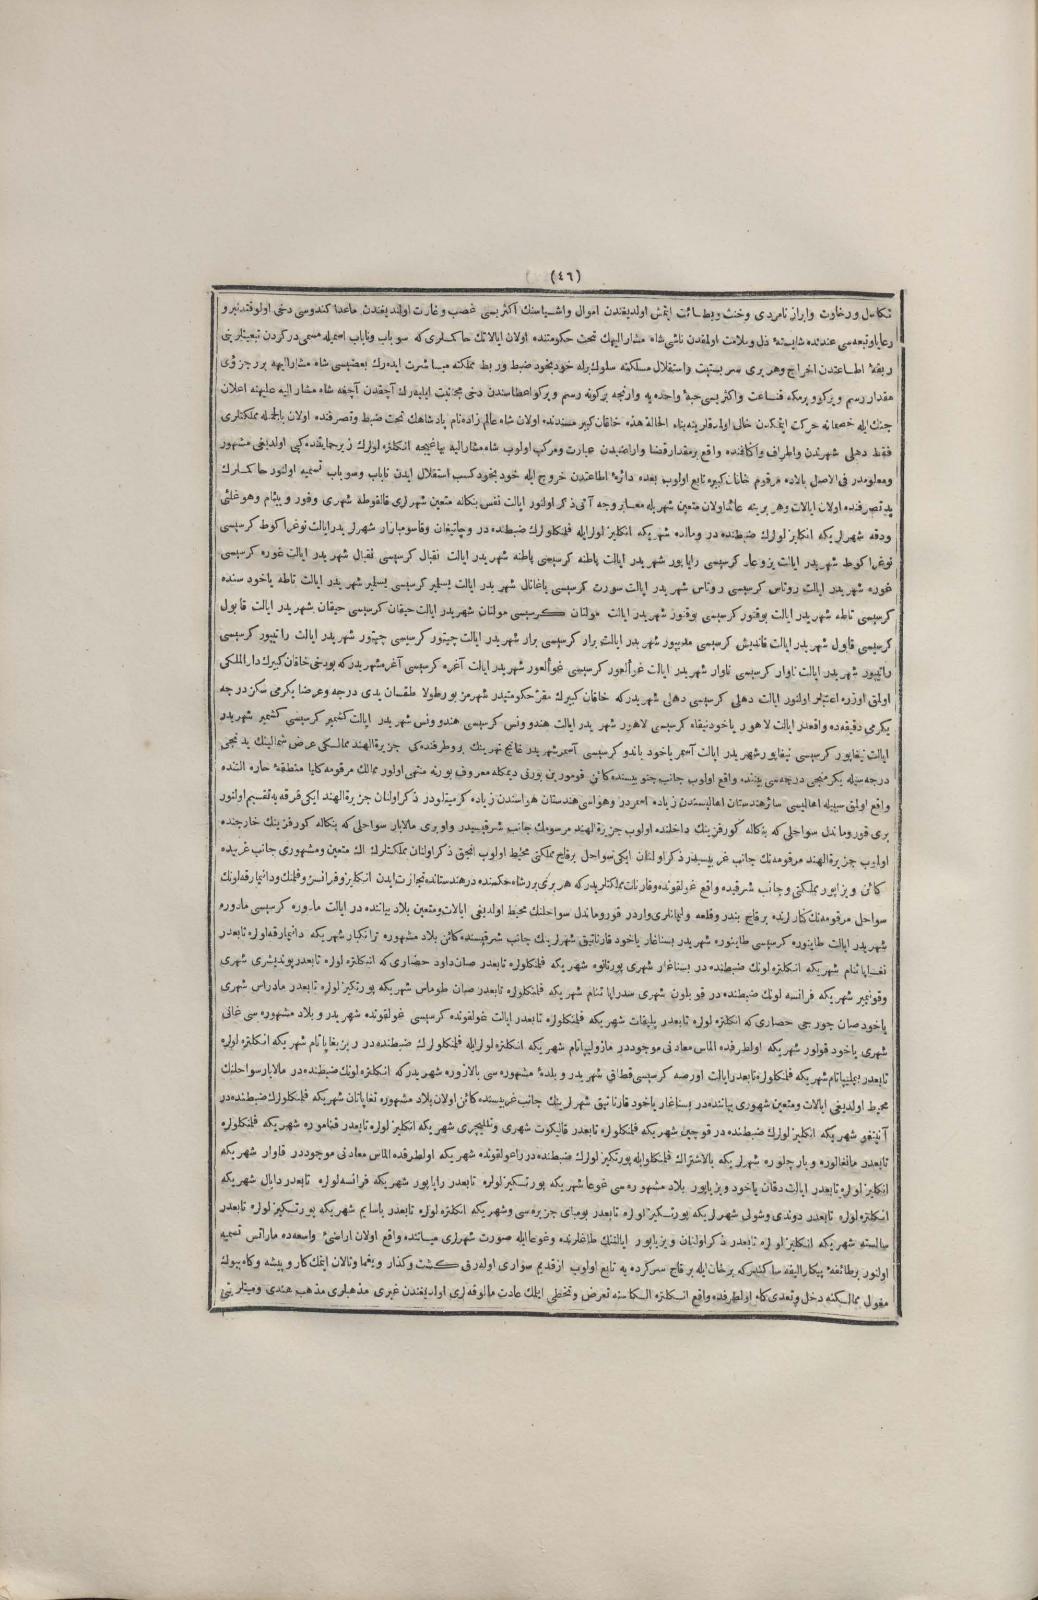 (٤٦)
تكاسل ورخاوت وابراز نامردى وخنث وبطائت ايتمش اولديغندن اموال واشياسنك اكثريسى غصب وغارت اولنديغندن ماعدا كندوسى دخى اولوقتدنبرو
رعايا وتبعه سى عندنده شايسته ذل وملامت اولمقدن ناشى شاه مشاراليهك تحت حكومتنده اولان ايالاتك حاكملرى كه سوباب وناباب اسميله مسمى در كردن تبعيتلرينى
ربقة اطاعتدن اخراج وهر برى سربستيت واستقلال مسلكنه سلوك برله خود بخود ضبط وربط مملكته مباشرت ايدەرك بعضيسى شاه مشاراليهه برر جزؤى
مقدار رسم ويركو ويرمكه قناعت واكثريسى حبة واحده يه وارنجه يركونه رسم ويركو اعطاسندن دخى مجانبت ايليەرك آچقدن آچغه شاه مشار اليه عليهنه اعلان
جنك ايله خصمانه حركت ايتمكدن خالى اولمدقلرينه بناء الحالة هذه خاقان كبير مسندنده اولان شاه عالم زاده نام پادشاهك تحت ضبط وتصرفنده اولان بالجمله مملكتلرى
فقط دهلى شهرندن واطراف واكنافنده واقع بر مقدار قضا واراضيدن عبارت ومركب اولوب شاه مشاراليه بياغيجه انكلتره لولرك زير حمايه‌سنده كبى اولديغى مشهور
ومعلومدر فى الاصل بالاده مرقوم خانان كبيره تابع اولوب بعده دائرۀ اطاعتدن خروج ايله خود بخود كسب استقلال ايدن ناباب وسوباب تسميه اولنور حاكملرك
يد تصرفنده اولان ايالات وهر برينه عائد اولان متعين شهريله معا بروجه آتى ذكر اولنور ايالت نفس بنكاله متعين شهرلرى قالقوطه شهرى وقور و يتنام وهوغلئى
ودقه شهرلريكه انكليز لولرك ضبطنده در ومالده شهريكه انكليز لولرايله فلمنكلولرك ضبطنده در وچاتيغان وقاسومبازار شهرلريدر ايالت نوغرا كوط كرسيسى
نوغرا كوط شهريدر ايالت يزوعار كرسيسى راپاپور شهريدر ايالت پاطنه كرسيسى پاطنه شهريدر ايالت نقبال كرسيسى نقبال شهريدر ايالت غوره كرسيسى
غوره شهريدر ايالت روتاس كرسيسى روتاس شهريدر ايالت سورت كرسيسى ياغانال شهريدر ايالت يسلمير كرسيسى يسلمير شهريدر ايالت تاطه ياخود سنده
كرسيسى تاطه شهريدر ايالت بوقنور كرسيسى بوقنور شهريدر ايالت مولتان كرسيسى مولتان شهريدر ايالت حيقان كرسيسى حيقان شهريدر ايالت قابول
كرسيسى قابول شهريدر ايالت قانديش كرسيسى مدبپور شهريدر ايالت برار كرسيسى برار شهريدر ايالت چيتور كرسيسى چيتور شهريدر ايالت راتيپور كرسيسى
راتيپور شهريدر ايالت ناوار كرسيسى ناوار شهريدر ايالت غوألعور كرسيسى غوألعور شهريدر ايالت آغره كرسيسى آغره شهريدركه بودخى خاقان كبيرك دار الملكى
اولمق اوزره اعتبار اولنور ايالت دهلى كرسيسى دهلى شهريدركه خاقان كبيرك مقر حكومتيدر شهر مزبور طولا طقسان يدى درجه وعرضا يكرمى سكز درجه
يكرمى دقيقه ده واقعدر ايالت لاهور ياخود نيفاه كرسيسى لاهور شهريدر ايالت هندوونس كرسيسى هندوونس شهريدر ايالت كشمير كرسيسى كشمير شهريدر
ايالت نيغاپور كرسيسى نيغاپور شهريدر ايالت آسمر ياخود باندو كرسيسى آسمر شهريدر غانج نهرينك بروطرفنده كى جزيرة الهند ممالكى عرض شمالينك يدنجى
درجه سيله يكرمنجى درجه سى بيننده واقع اولوب جانب جنوبيسنده كائن قومورين بورنى ديمكله معروف بورنه منتهى اولور ممالك مرقومه كليا منطقۀ حاره التنده
واقع اولمق سببيله اهاليسى سائر هندستان اهاليسندن زياده اسمردر وهواسى هندستان هواسندن زياده كرميتلودر ذكر اولنان جزيرة الهند ايكى فرقه يه تقسيم اولنور
برى قوروماندل سواحلى كه بنكاله كورفزينك داخلنده اولوب جزيرة الهند مرسومك جانب شرقيسيدر واوبرى مالابار سواحلى كه بنكاله كورفزينك خارجنده
اولوب جزيرة الهند مرقومه نك جانب غربيسيدر ذكر اولنان ايكى سواحل برقاچ مملكتى محيط اولوب انجق ذكر اولنان مملكتلرك اك متعين ومشهورى جانب غربيده
كائن ويزاپور مملكتى وجانب شرقيده واقع غولقونده وقارنات مملكتلريدركه هر برى بر شاه حكمنده در هندستانده تجارت ايدن انكليز وفرانسز وفلمنك ودانيمارقه لونك
سواحل مرقومه نك كنارلرنده برقاچ بندر وقلعه وليمانلرى واردر قوروماندل سواحلنك محيط اولديغى ايالات ومتعين بلاد بياننده در ايالت مادوره كرسيسى مادوره
شهريدر ايالت طاينوره كرسيسى طاينوره شهريدر بسناغار ياخود قارناتيق شهرلرينك جانب شرقيسنده كائن بلاد مشهوره ترانكبار شهريكه دانيمارقه لولره تابعدر
نغاپاتنام شهريكه انكلتره لونك ضبطنده در بسناغار شهرى پورتانوه شهريكه فلمنكلولره تابعدر صان داود حصارى كه انكلتره لولره تابعدر پونديشرى شهرى
وقونمير شهريكه فرانسه لونك ضبطنده در قوبلون شهرى سدراپاتنام شهريكه فلمنكلولره تابعدر صان طوماس شهريكه پورتكيز لولره تابعدر مادراس شهرى
ياخود صان جورجى حصارى كه انكلتره لولره تابعدر پليقات شهريكه فلمنكلولره تابعدر ايالت غولقونده كرسيسى غولقونده شهريدر وبلاد مشهوره سى غانى
شهرى ياخود قولور شهريكه اولطرفده الماس معادنى موجوددر مازوليپاتام شهريكه انكلتره لولرايله فلمنكلولرك ضبطنده در ويزيغاپاتام شهريكه انكلتره لولره
تابعدر بيمليپاتام شهريكه فلمنكلولره تابعدر ايالت اورصه كرسيسى قطاقى شهريدر وبلدۀ مشهوره سى بالازوره شهريدركه انكلتره لونك ضبطنده در مالابار سواحلنك
محيط اولديغى ايالات ومتعين شهورى بياننده در بسناغار ياخود قارناتيق شهرلرينك جانب غربيسنده كائن اولان بلاد مشهوره تغاپاتان شهريكه فلمنكلولرك ضبطنده در
آنينغو شهريكه انكليز لولرك ضبطنده در قوچين شهريكه فلمنكلولره تابعدر قاليكوت شهرى وتلليچرى شهريكه انكليز لولره تابعدر قنانوره شهريكه فلمنكلولره
تابعدر مانغالوره وبارچلوره شهرلريكه بالاشتراك فلمنكلوايله پورتكيز لولرك ضبطنده در راعولقونده شهريكه اولطرفده الماس معادنى موجوددر قاوار شهريكه
انكليز لولره تابعدر ايالت دقان ياخود ويزياپور بلاد مشهوره سى غوعا شهريكه پورتكيز لولره تابعدر راپاپور شهريكه فرانسه لولره تابعدر دابال شهريكه
انكلتره لولره تابعدر دوندى وشولى شهرلريكه پورتكيز لولره تابعدر بومباى جزيره سى وشهريكه انكلتره لولره تابعدر باساييم شهريكه پورتكيز لولره تابعدر
سالسته شهريكه انكليز لولره تابعدر ذكر اولنان ويزياپور ايالتنك طاغلرنده وغوعا ايله صورت شهرلرى ميانننده واقع اولان اراضئ واسعه ده ماراتس تسميه
اولنور برطائفۀ بيكار اليقه ساكنلدركه برخان ايله برقاچ سركرده يه تابع اولوب از قديم سوارى اولەرق كشت وكذار ويغما وتالان ايتمك كار وپيشه وكاه بيوك
مغول ممالكنه دخل وتعدى كاه اولطرفده واقع انكلتره السكاسنه تعرض وتخطى ايلمك عادت مألوفه لرى اولديغندن غيرى مذهبلرى مذهب هندى وميتلريتى